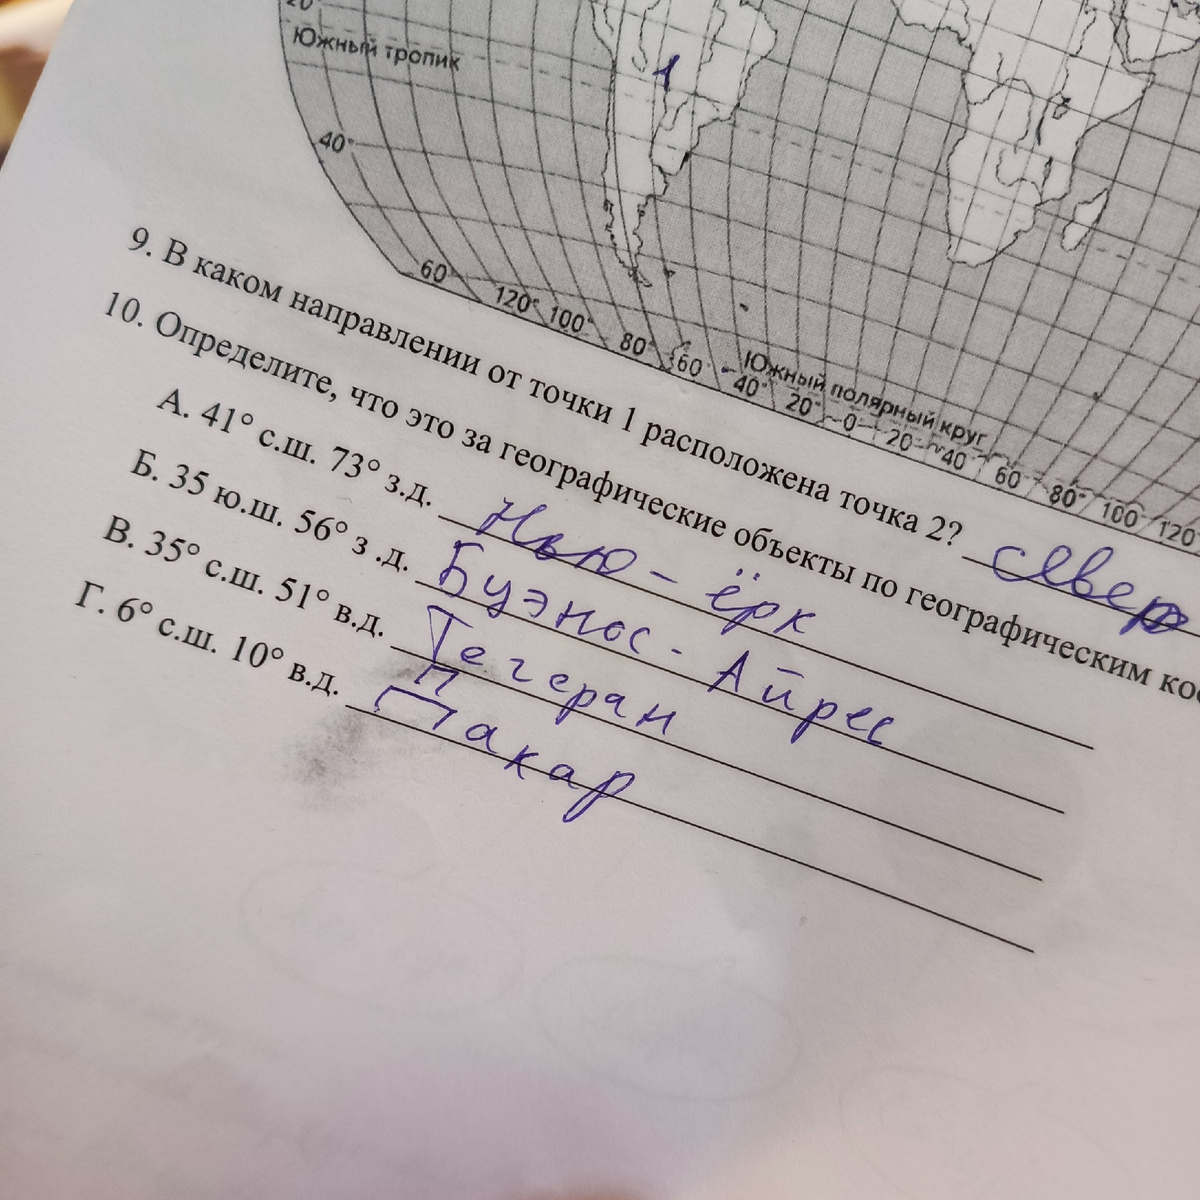 20°
Южный тропик
1
40°
60°
120° 100° 80° 60° 40° 20° 0° 20° 40° 60° 80° 100 120°
Южный полярный круг
9. В каком направлении от точки 1 расположена точка 2? север
10. Определите, что это за географические объекты по географическим коо
А. 41° с.ш. 73° з.д. Нью-ёрк
Б. 35 ю.ш. 56° з .д. Буэнос-Айрес
В. 35° с.ш. 51° в.д. Тегеран
Г. 6° с.ш. 10° в.д. Дакар